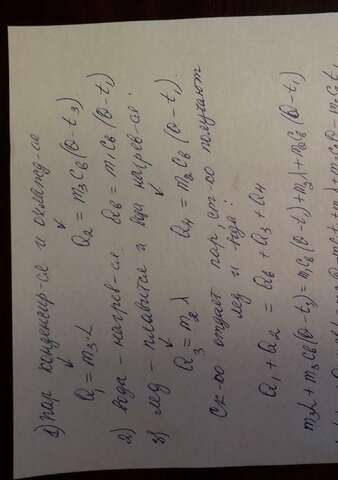 1) пар конденсир-ся и охлажд-ся
Q₁ = m₃·L    Q₂ = m₃cв(θ-t₃)
2) вода – нагрев-ся. Qв = m₁cв(θ-t₁)
3) лёд – плавится и вода нагрев-ся.
Q₃ = m₂λ    Q₄ = m₂cв(θ-t₁).
Ск-ко отдаёт пар, ст-ко получают
лёд и вода!
Q₁ + Q₂ = Qв + Q₃ + Q₄
m₃L + m₃cв(θ-t₃) = m₁cв(θ-t₁) + m₂λ + m₂cв(θ-t₁)